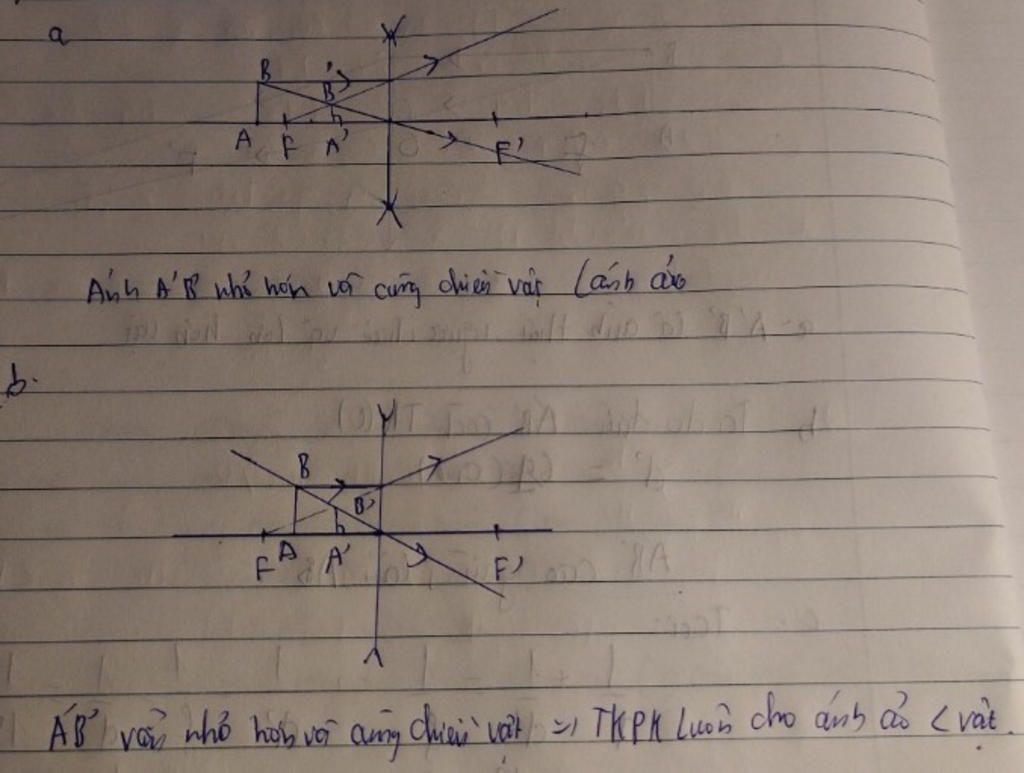 a
B B'
A F A' F'
Ảnh A'B' nhỏ hơn và cùng chiều vật (ảnh ảo
b.
B B'
F A A' F'
A'B' vẫn nhỏ hơn và cùng chiều vật => TKPK luôn cho ảnh ảo < vật.